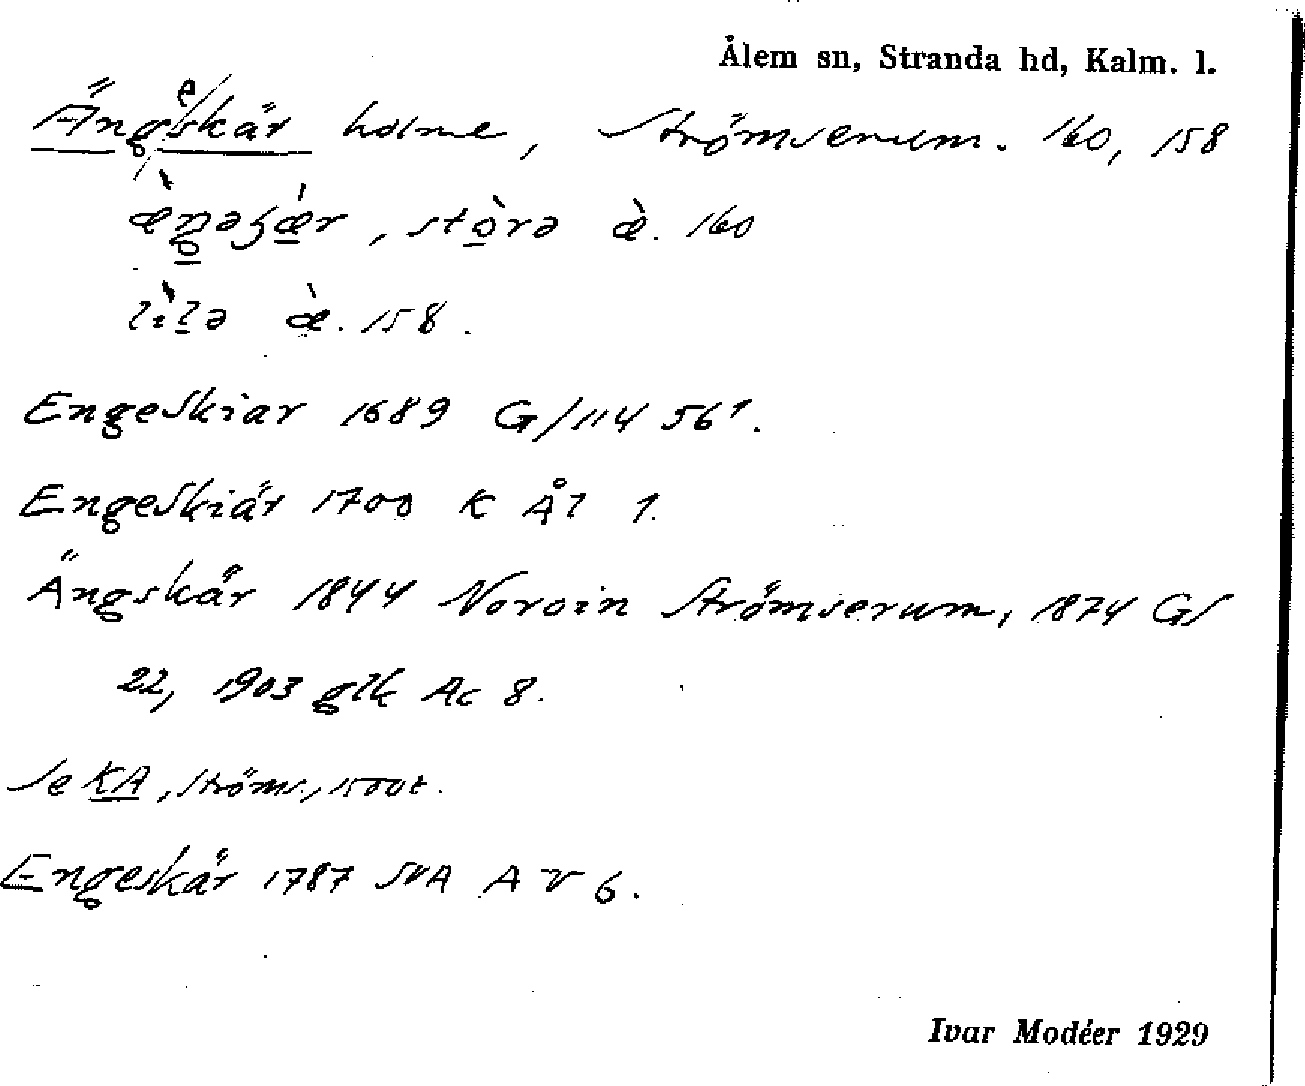 Ålem sn, Stranda hd, Kalm. l.
Ängeskär holme, Strömserum. 160, 158
æ̀ŋəʒǽr, stòrə æ̀. 160
lìlə æ̀. 158.
Engeskiar 1689 G/114 56¹.
Engeskiär 1700 K Ål 1.
Ängskär 1844 Noroin Strömserum, 1874 GS
22, 1903 glk Ac 8.
Se KA, Ströms., 1500t.
Engeskär 1787 SVA A V 6.
Ivar Modéer 1929